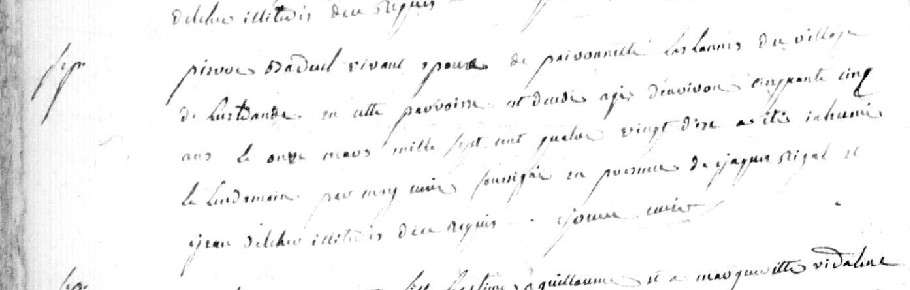 delcher illitérés de ce requis
sep.
pierre Bradeul vivant epoux de peironnelle Laslannes du village
de Lustrande en cette parroisse est decedé agé d'environ cinquante cinq
ans le onze mars mille sept cent quatre vingt dixe a été inhumé
le lendemain par moy curé soussigné en presence de jaques Rigal et
jean delcher illitérés de ce requis. curé
guillaume et a margueritte vidaline